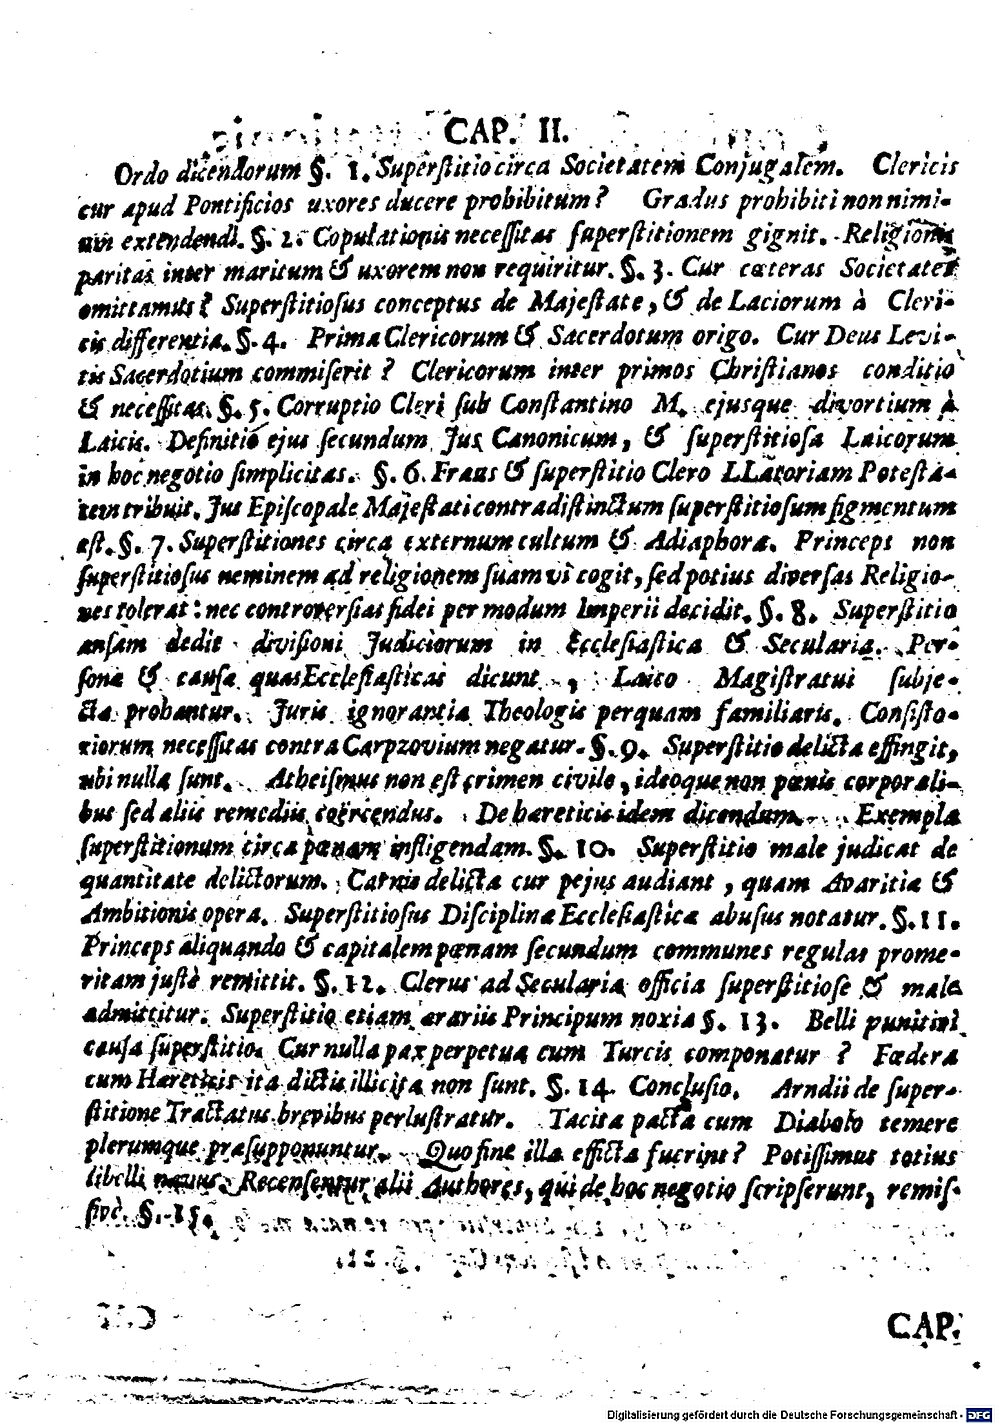 CAP. II.
Ordo dicendorum §. 1. Superſtitio circa Societatem Conjugalem. Clericis
cur apud Pontificios uxores ducere prohibitum? Gradus prohibiti non nimi-
um extendendi. §. 2. Copulationis neceſſitas ſuperſtitionem gignit. Religionis
paritas inter maritum & uxorem non requiritur. §. 3. Cur cæteras Societates
omittamus? Superſtitioſus conceptus de Majeſtate, & de Laciorum à Cleri-
cis differentia. §. 4. Prima Clericorum & Sacerdotum origo. Cur Deus Levi-
tis Sacerdotium commiſerit? Clericorum inter primos Chriſtianos conditio
& neceſſitas. §. 5. Corruptio Cleri ſub Conſtantino M. ejusque divortium à
Laicis. Definitio ejus ſecundum Jus Canonicum, & ſuperſtitioſa Laicorum
in hoc negotio ſimplicitas. §. 6. Fraus & ſuperſtitio Clero LLatoriam Poteſta-
tem tribuit. Jus Epiſcopale Majeſtati contradiſtinctum ſuperſtitioſum figmentum
eſt. §. 7. Superſtitiones circa externum cultum & Adiaphora. Princeps non
ſuperſtitioſus neminem ad religionem ſuam vi cogit, ſed potius diverſas Religio-
nes tolerat: nec controverſias fidei per modum Imperii decidit. §. 8. Superſtitio
anſam dedit diviſioni Judiciorum in Eccleſiaſtica & Secularia. Per-
ſonæ & cauſæ quas Eccleſiaſticas dicunt, Laico Magiſtratui ſubje-
ctæ probantur. Juris ignorantia Theologis perquam familiaris. Conſiſto-
riorum neceſſitas contra Carpzovium negatur. §. 9. Superſtitio delicta effingit,
ubi nulla ſunt. Atheiſmus non eſt crimen civile, ideoque non pœnis corporali-
bus ſed aliis remediis coërcendus. De hæreticis idem dicendum. Exempla
ſuperſtitionum circa pœnam infligendam. §. 10. Superſtitio male judicat de
quantitate delictorum. Carnis delicta cur pejus audiant, quam Avaritiæ &
Ambitionis opera. Superſtitioſus Diſciplinæ Eccleſiaſticæ abuſus notatur. §. 11.
Princeps aliquando & capitalem pœnam ſecundum communes regulas prome-
ritam juſtè remittit. §. 12. Clerus ad Secularia officia ſuperſtitioſe & male
admittitur. Superſtitio etiam ærariis Principum noxia §. 13. Belli punitivi
cauſa ſuperſtitio. Cur nulla pax perpetua cum Turcis componatur? Fœdera
cum Hæreticis ita dictis illicita non ſunt. §. 14. Concluſio. Arndii de ſuper-
ſtitione Tractatus brevibus perluſtratur. Tacita pacta cum Diabolo temere
plerumque præſupponuntur. Quo fine illa efficta fuerint? Potiſſimus totius
libelli nævus. Recenſentur alii Authores, qui de hoc negotio ſcripſerunt, remiſ-
ſivè. §. 15.
CAP.
Digitalisierung gefördert durch die Deutsche Forschungsgemeinschaft - DFG